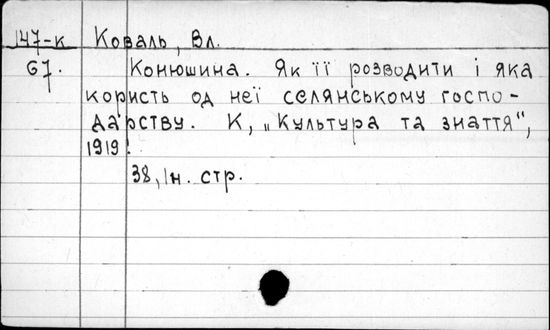 147-к Коваль, Вл.
67. Конюшина. Як її розводити і яка
користь од неї селянському госпо-
дарству. К, „Культура та знаття“,
1919.
38, Iн. стр.